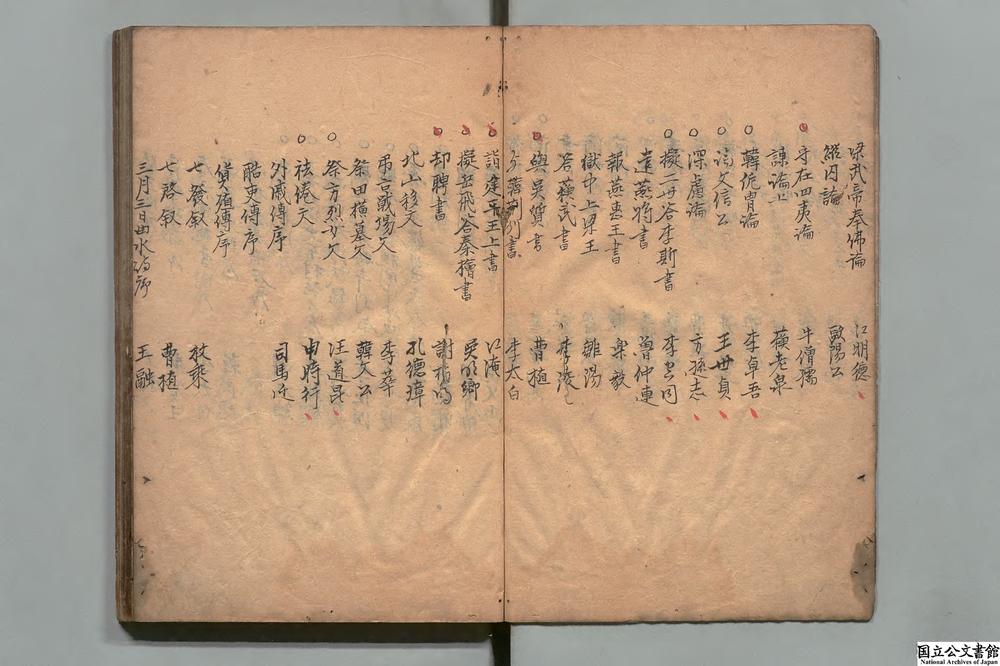 梁武帝奉佛論 江明德
縱囚論 歐陽公
守在四夷論 牛僧孺
諫論上 蘓老泉
韓侂冑論 李卓吾
論文信公 王世貞
深慮論 方孫志
擬二世答李斯書 李空同
遺燕將書 魯仲連
報燕惠王書 樂毅
獄中上梁王 雛湯
答蘓武書 李陵
與吳質書 曹植
李太白
詣建平王上書 江淹
擬岳飛答秦檜書 吳明卿
却聘書 謝枋得
北山移文 孔德璋
吊古戰場文 李華
祭田橫墓文 韓文公
祭方烈女文 汪道昆
袪倦文 申時行
外戚傳序 司馬迁
酷吏傳序
貨殖傳序
七發叙 枚乘
七啓叙 曹植
三月三日曲水詩序 王融
国立公文書館
National Archives of Japan